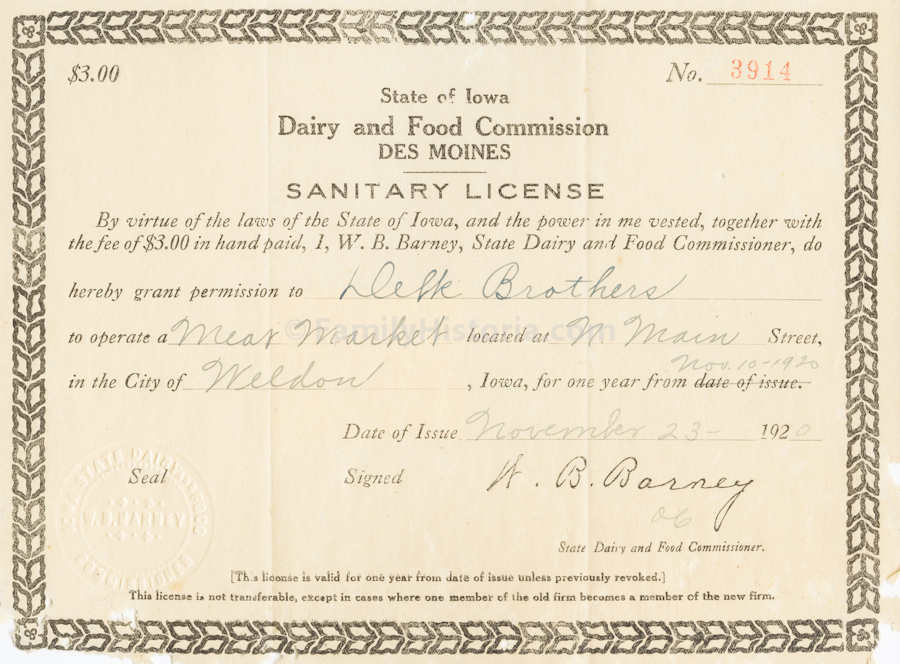 $3.00 No. 3914
State of Iowa
Dairy and Food Commission
DES MOINES
SANITARY LICENSE
By virtue of the laws of the State of Iowa, and the power in me vested, together with
the fee of $3.00 in hand paid, I, W. B. Barney, State Dairy and Food Commissioner, do
hereby grant permission to Delk Brothers
©FamilyHistoria.com
to operate a Meat Market located at N. Main Street,
Nov. 10-1920
in the City of Weldon, Iowa, for one year from date of issue.
Date of Issue November 23- 1920
IOWA STATE DAIRY AND FOOD
W. B. BARNEY
COMMISSIONER
Seal Signed W. B. Barney
State Dairy and Food Commissioner.
[This license is valid for one year from date of issue unless previously revoked.]
This license is not transferable, except in cases where one member of the old firm becomes a member of the new firm.